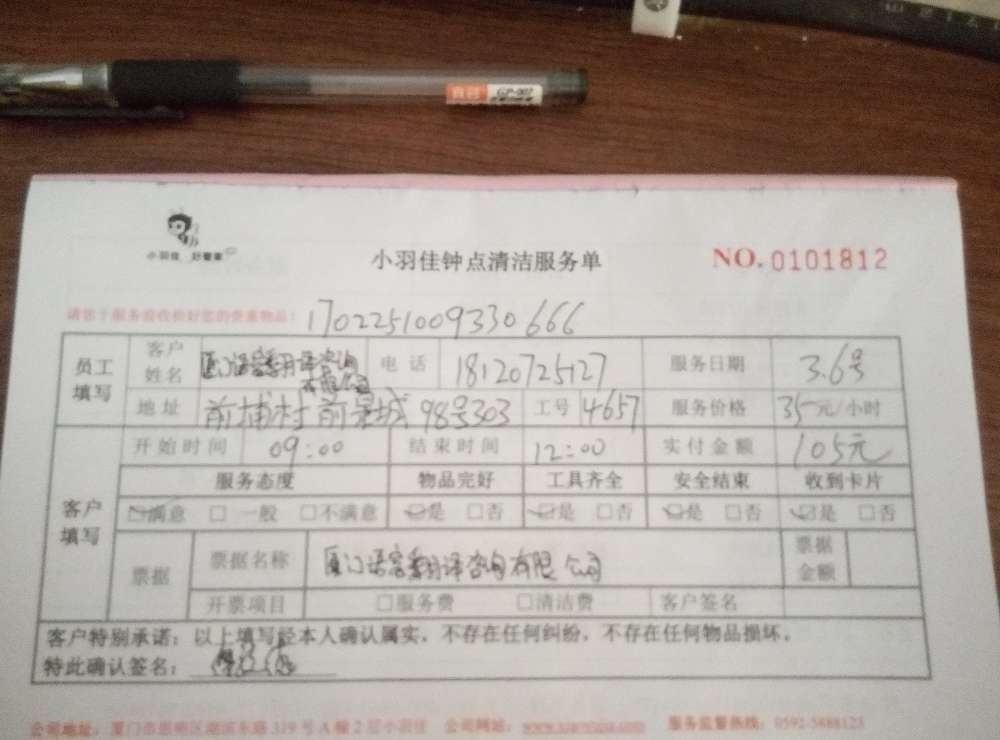 GP-007
小羽佳 好管家
小羽佳钟点清洁服务单
NO.0101812
请您于服务前收好您的贵重物品:
1702251009330666
员工填写
客户姓名 厦门语客翻译咨询有限公司 电话 18120725127 服务日期 3.6号
地址 前埔村前景城98号303 工号 4657 服务价格 35元/小时
客户填写
开始时间 09:00 结束时间 12:00 实付金额 105元
服务态度 物品完好 工具齐全 安全结束 收到卡片
满意 一般 不满意 是 否 是 否 是 否 是 否
票据 票据名称 厦门语客翻译咨询有限公司 票据金额
开票项目 服务费 清洁费 客户签名
客户特别承诺:以上填写经本人确认属实,不存在任何纠纷,不存在任何物品损坏。
特此确认签名:
公司地址:厦门市思明区湖滨东路319号A幢2层小羽佳 公司网站: 服务监督热线:0592-5888123